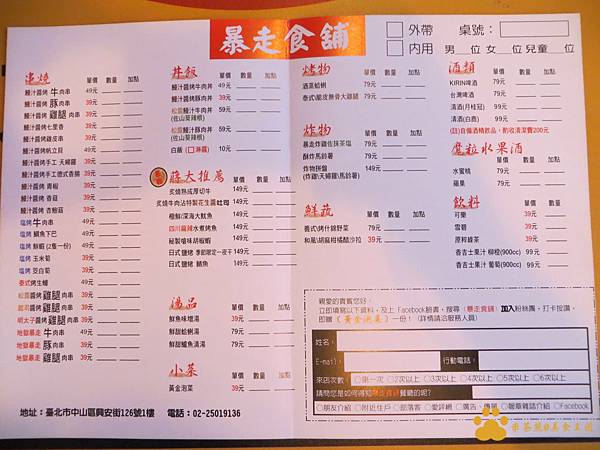 暴走食舖
外帶
桌號：
內用 男 位女 位兒童 位
串燒 單價 數量 加點
鰻汁醬烤 牛 肉串 49元
鰻汁醬烤 豚 肉串 39元
鰻汁醬烤 雞腿 肉串 39元
鰻汁醬烤七里香 39元
鰻汁醬烤雞皮串 39元
鰻汁醬烤帆立貝 49元
鰻汁醬烤手工 天婦羅 39元
鰻汁醬烤手工德式香腸 39元
鰻汁醬烤 青椒 39元
鰻汁醬烤 香菇 39元
鰻汁醬烤 杏鮑菇 39元
塩烤 牛 肉串 49元
塩烤 鯛魚下巴 49元
塩烤 鮮蝦 (2隻一份) 39元
塩烤 玉米筍 39元
塩烤 豆白筍 39元
泰式烤生蠔 49元
松露 雞腿 肉串 49元
起司 雞腿 肉串 49元
明太子 雞腿 肉串 59元
地獄暴走 牛 肉串 49元
地獄暴走 豚 肉串 39元
地獄暴走 雞腿 肉串 39元
丼飯 單價 數量 加點
鰻汁醬烤牛肉丼 49元
鰻汁醬烤豚肉丼 39元
松露醬汁牛肉丼 59元
(佐山葵辣根)
松露醬汁豚肉丼 59元
(佐山葵辣根)
白飯 (□淋醬) 10元
蔣大推薦 單價 數量 加點
炙燒熟成厚切牛 149元
炙燒牛肉沾特製花生醬吐司 149元
極鮮/深海大魷魚 149元
四川麻辣水煮烤魚 149元
秘製嗆味胡椒蝦 149元
日式鹽烤 季節限定一夜干 149元
日式鹽烤 鯖魚 149元
湯品 單價 數量 加點
鮮魚味增湯 39元
鮮甜蛤蜊湯 79元
鮮甜鱸魚清湯 79元
小菜 單價 數量 加點
黃金泡菜 39元
烤物 單價 數量 加點
酒蒸蛤蜊 79元
泰式/脆皮無骨大雞腿 79元
炸物 單價 數量 加點
暴走炸雞佐抹茶塩 79元
酥炸馬鈴薯 79元
炸物拼盤 149元
(炸雞\天婦羅\馬鈴薯)
鮮蔬 單價 數量 加點
義式/烤什錦野菜 79元
和風/胡麻柑橘醋沙拉 39元
酒類 單價 數量 加點
KIRIN啤酒 79元
台灣啤酒 79元
清酒(月桂冠) 99元
清酒(白鹿) 99元
(註)自備酒精飲品，酌收清潔費200元
魔粒水果酒
水蜜桃 79元
蘋果 79元
飲料 單價 數量 加點
可樂 39元
雪碧 39元
原粹綠茶 39元
香吉士果汁 柳橙(900cc) 99元
香吉士果汁 葡萄(900cc) 99元
親愛的貴賓您好：
立即填寫以下資料，及上 Facebook臉書，搜尋（暴走食舖）加入粉絲團，打卡按讚，
即贈（黃金泡菜）一份！（詳情請洽服務人員）
姓名：
E-mail：
行動電話：
來店次數： ○第一次 ○2次以上 ○3次以上 ○4次以上 ○5次以上 ○6次以上
請問您是如何得知暴走食舖餐廳的呢?
○朋友介紹 ○附近住戶 ○部落客 ○愛評網 ○廣告、傳單 ○報章雜誌介紹 ○Facebook
地址：臺北市中山區興安街126號1樓 電話：02-25019136